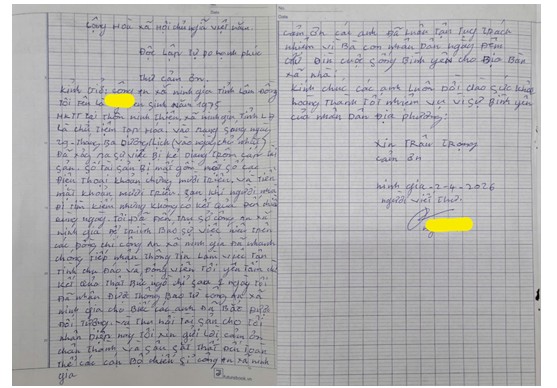 Cộng Hòa xã hội chủ nghĩa việt nam.
Độc Lập Tự do hạnh phúc
Thư cảm ơn.
Kính gửi: công an xã ninh gia Tỉnh Lâm Đồng
Tôi Tên Là sinh năm 1975
HKTT tại Thôn ninh Thiện xã ninh gia Tỉnh LĐ
Là chủ Tiệm Tạp Hóa. vào rạng sáng ngày
29 Tháng Ba Dương Lịch (vào ngày chủ nhật)
Đã xảy ra sự việc Bị kẻ dùng Trộm Tài
sản. số Tài sản Bị mất gồm một số
Điện Thoại khoản chừng mười Triệu và Tiền
mặt khoản mười Triệu. sau khi người nhà
đi Tìm kiếm nhưng không có kết quả Đến
cùng ngày. Tôi Đã Đến Trụ sự công an xã
ninh gia để Trình Báo sự việc nêu Trên
các Đồng chí công An xã ninh gia Đã nhanh
chóng Tiếp nhận Thông Tin Làm việc Tận
Tình chu Đáo và Động viên Tôi yên Tâm chờ
kết quả Thật Bất ngờ chỉ sau 1 ngày Tôi
Đã nhận Được Thông Báo Từ công an xã
ninh gia cho Biết các anh Đã Bắt Được
Đối Tượng và Thu hồi Tài sản cho Tôi
nhân Diệp này Tôi xin gửi Lời cảm ơn
chân Thành và sâu sắc Thất Đến Toàn
Thể các cán Bộ chiến sĩ công an xã ninh
gia
cảm ơn các anh Đã Luôn Tận Tụy Trách
nhiệm vì Bà con nhân Dân ngày Đêm
giữ gìn cuộc sống Bình yên cho Bản
xã nhà.
kính chúc các anh Luôn Dồi dào sức khỏe
hoàng Thành Tốt nhiệm vụ vì sự Bình yên
của nhân Dân Địa phương.
xin Trân Trọng
cảm ơn
ninh gia - 2 - 4 - 2026
người viết Thư.